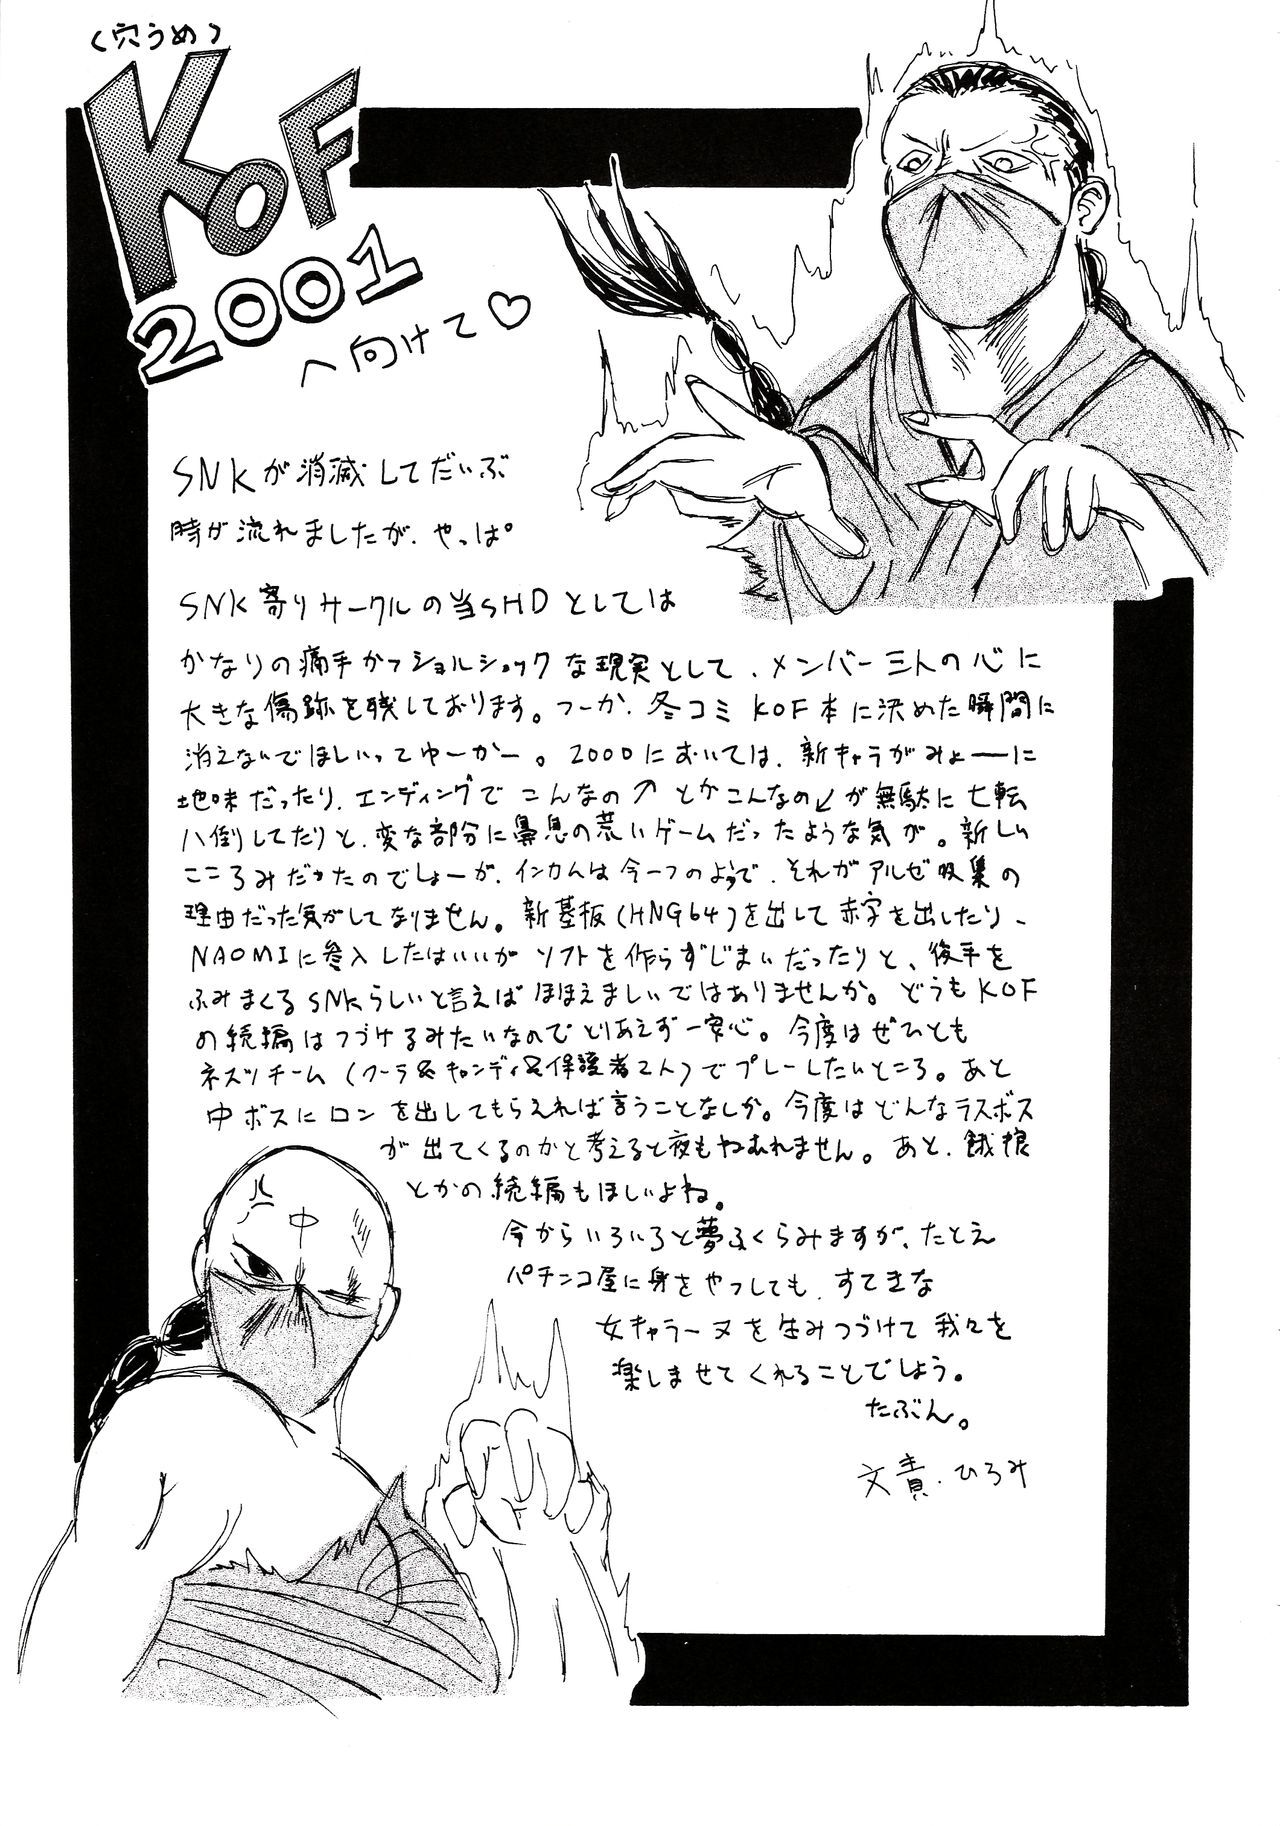 (穴うめ)
KOF
2001
へ向けて♡
SNKが消滅してだいぶ
時が流れましたが、やっぱ。
SNK寄りサークルの当SHDとしては
かなりの痛手かつショルショックな現実として、メンバー三人の心に
大きな傷跡を残しております。つーか、冬コミKOF本に決めた瞬間に
消えないでほしいってゆーかー。2000においては、新キャラがみょーーに
地味だったり、エンディングでこんなの↗とかこんなの↙が無駄に七転
八倒してたりと、変な部分に鼻息の荒いゲームだったような気が。新しい
こころみだかたのでしょーが、インカムは今一つのようで、それがアルゼ吸集の
理由だった気がしてなりません。新基板(HNG64)を出して赤字を出したり、
NAOMIに参入したはいいがソフトを作らずじまいだったりと、後手を
ふみまくるSNKらしいと言えばほほえましいではありませんか。どうもKOF
の続編はつづけるみたいなのでとりあえず一安心。今度はぜひとも
ネスツチーム(クーラ&キャンディ&保護者2人)でプレーしたいところ。あと
中ボスにロンを出してもらえれば言うことなしか。今度はどんなラスボス
が出てくるのかと考えると夜もねむれません。あと、餓狼
とかの続編もほしいよね。
今からいろいろと夢ふくらみますが、たとえ
パチンコ屋に身をやつしても、すてきな
女キャラーヌを生みつづけて我々を
楽しませてくれることでしょう。
たぶん。
文責・ひろみ
中